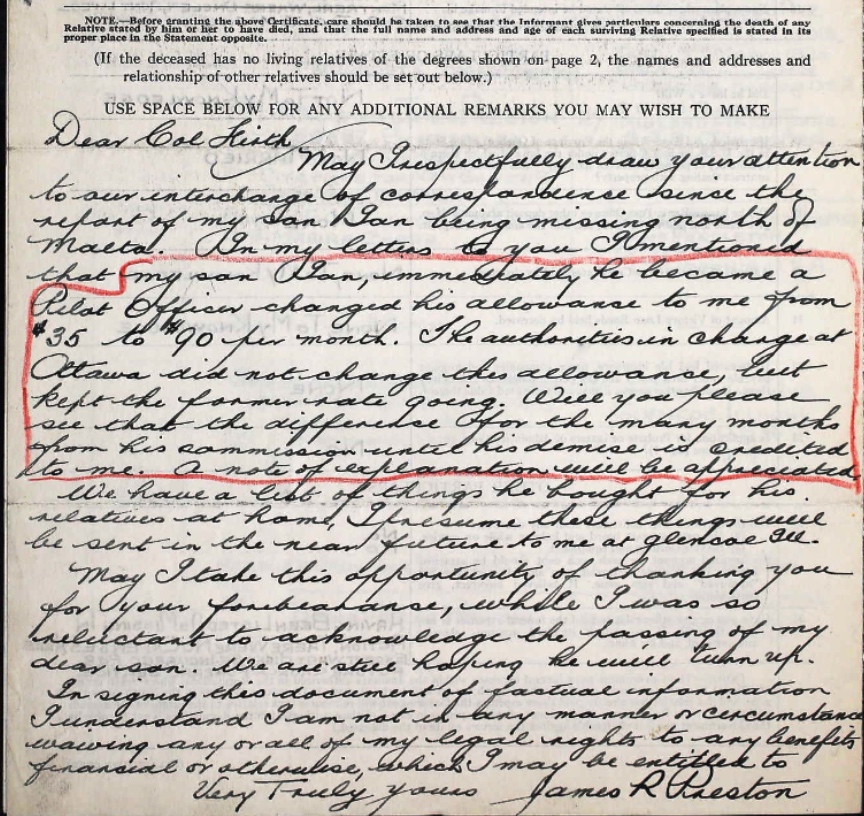 NOTE.—Before granting the above Certificate, care should be taken to see that the Informant gives particulars concerning the death of any
Relative stated by him or her to have died, and that the full name and address and age of each surviving Relative specified is stated in its
proper place in the Statement opposite.
(If the deceased has no living relatives of the degrees shown on page 2, the names and addresses and
relationship of other relatives should be set out below.)
USE SPACE BELOW FOR ANY ADDITIONAL REMARKS YOU MAY WISH TO MAKE
Dear Col Kirth
May I respectfully draw your attention
to our interchange of correspondence since the
report of my son Ian being missing north of
Malta. In my letters to you I mentioned
that my son Ian, immediately he became a
Pilot Officer changed his allowance to me from
$35 to $90 per month. The authorities in charge at
Ottawa did not change this allowance, but
kept the former rate going. Will you please
see that the difference for the many months
from his commission until his demise is credited
to me. A note of explanation will be appreciated.
We have a list of things he bought for his
relatives at home, I presume these things will
be sent in the near future to me at Glencoe Ill.
May I take this opportunity of thanking you
for your forebearance, while I was so
reluctant to acknowledge the passing of my
dear son. We are still hoping he will turn up.
In signing this document of factual information
I understand I am not in any manner or circumstance
waiving any or all of my legal rights to any benefits
financial or otherwise, which I may be entitled to
Very Truly yours James R Preston